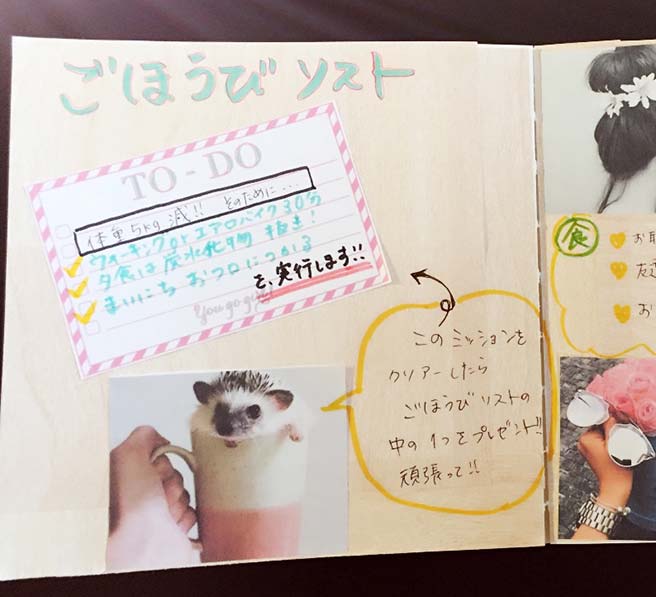 ごほうび リスト
TO-DO
体重5kg減!! そのために...
ウォーキング or エアロバイク 30分
夕食は 炭水化物 抜き!
まいにち おフロにつかる
を、実行します!!
You go
この ミッションを
クリアーしたら
ごほうび リストの
中の1つをプレゼント!!
頑張って!!
食
お取
友
お